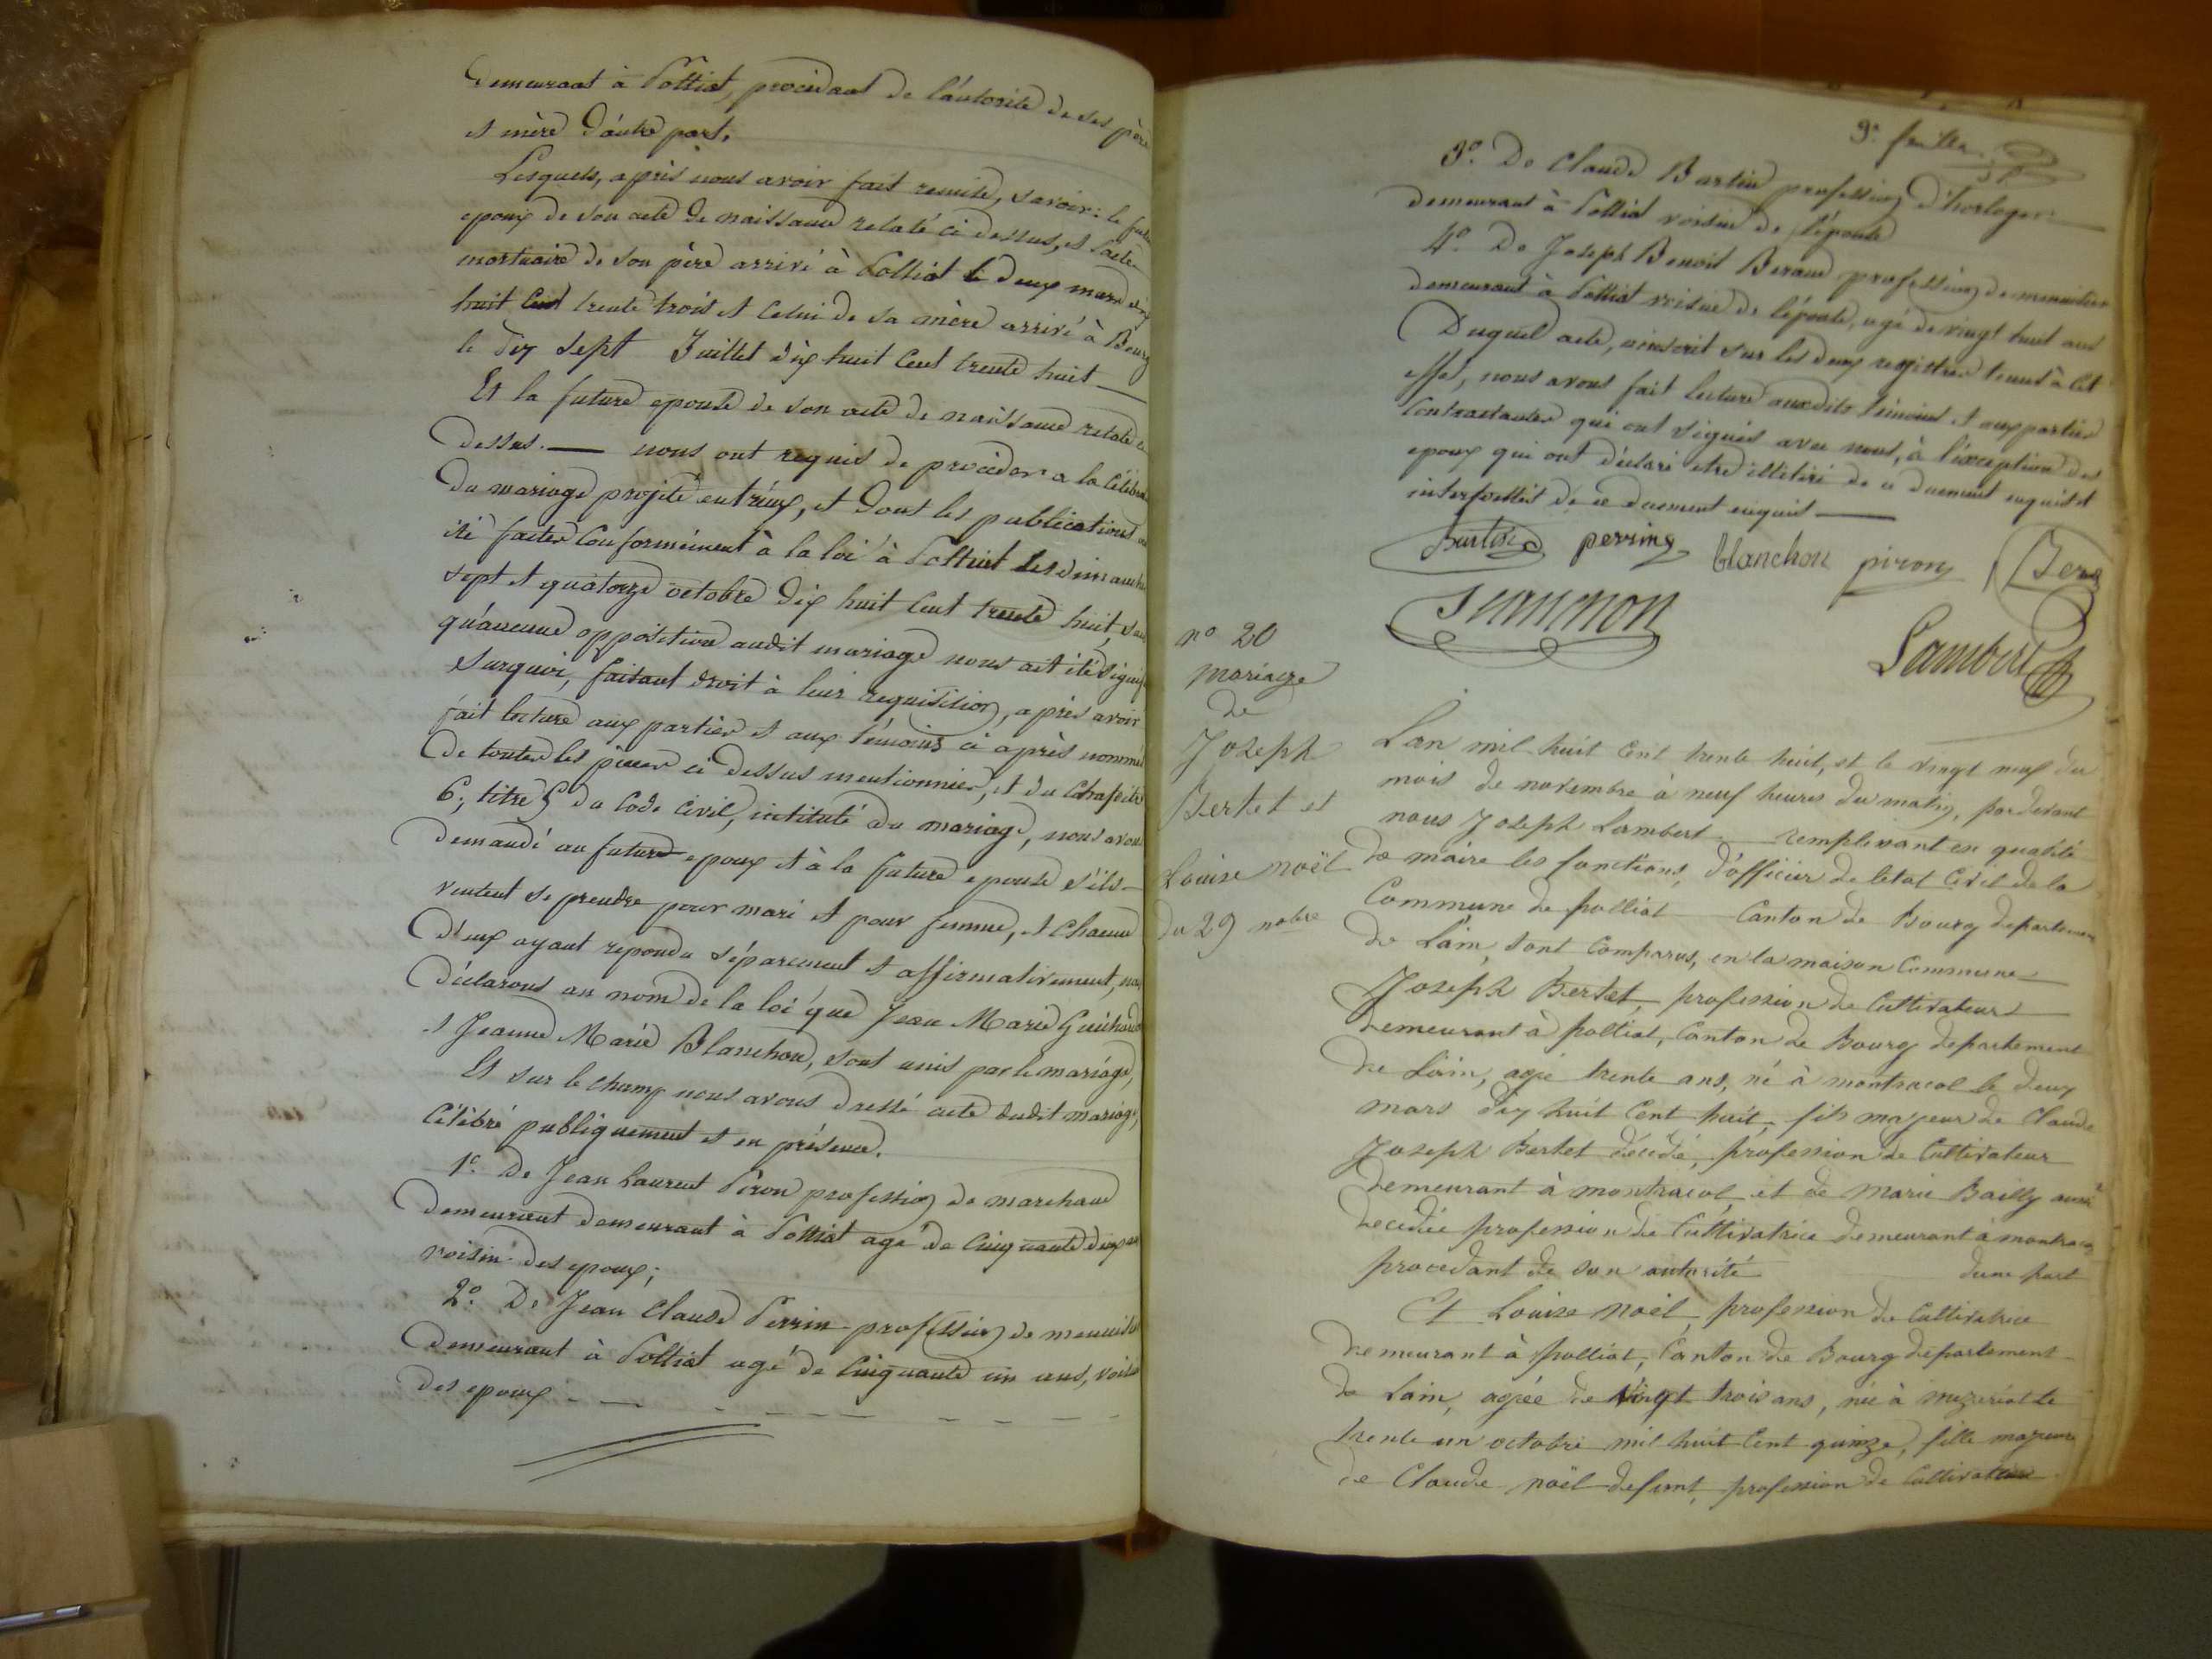 demeurant à Polliat, procédant de l'autorité de ses père
et mère d'autre part.
Lesquels, après nous avoir fait remise, savoir: le futur
epoux de son acte de naissance relaté ci dessus, et l'acte
mortuaire de son père arrivé à Polliat le deux mars dix
huit Cent trente trois et Celui de sa mère arrivé à Bourg
le dix sept Juillet dix huit Cent trente huit
Et la future epouse de son acte de naissance relaté ci
dessus. — nous ont requis de procéder a la Célébra
du mariage projeté entr'eux, et dont les publications ont
été faites Conformément à la loi à Polliat les dimanches
sept et quatorze octobre dix huit Cent trente huit, sans
qu'aucune opposition audit mariage nous ait été signif
Surquoi, faisant droit à leur requisition, après avoir
fait lecture aux parties et aux témoins ci après nommés
de toutes les pièces ci dessus mentionnées, et du Chapitre
6, titre 5 du Code Civil, intitulé du mariage, nous avons
demandé au future epoux et à la future epouse s'ils
veulent se prendre pour mari et pour femme, et chacun
d'eux ayant repondu séparement et affirmativement, nous
déclarons au nom de la loi que Jean Marie Guichard
et Jeanne Marie Blanchon, sont unis par le mariage,
Et sur le champ nous avons dressé acte dudit mariage,
Célébré publiquement et en présence.
1º. De Jean Laurent Piron profession de marchand
demeurant demeurant à Polliat agé de Cinquante deux ans
voisin des epoux;
2º. De Jean Claude Perrin profession de menuisier
demeurant à Polliat agé de Cinquante un ans, voisin
des epoux
9e. feuille
3º. De Claude Burtin profession d'horloger
demeurant à Polliat voisin de l'épouse
4º. De Joseph Benoit Beraud profession de menuisier
demeurant à Polliat voisin de l'épouse, agé de vingt huit ans
Duquel acte, inscrit sur les deux registres tenus à Cet
effet, nous avons fait lecture auxdits témoins et aux parties
Contractantes qui ont signés avec nous, à l'exception des
epoux qui ont déclaré etre illitéré de ce duement enquis et
interpellés de ce duement enquis
Burtin perring blanchon piron Bera
Lambert
nº 20
mariage
de
Joseph
Bertet et
Louise noël
du 29 nobre
L'an mil huit Cent trente huit, et le vingt neuf du
mois de novembre à neuf heures du matin, pardevant
nous Joseph Lambert remplissant en qualité
de maire les fonctions, d'officier de l'etat Civil de la
Commune de polliat Canton de Bourg departement
de L'ain, sont Comparus, en la maison Commune
Joseph Bertet, profession de Cultivateur
demeurant à polliat, Canton de Bourg departement
de L'ain, agé trente ans, né à montracol le deux
mars dix huit Cent huit, fils majeur de Claude
Joseph Bertet décédé, profession de Cultivateur
demeurant à montracol, et de marie Bailly aussi
decédée profession de Cultivatrice demeurant à montracol
procedant de son autorité d'une part
Et Louise noël, profession de Cultivatrice
demeurant à polliat, Canton de Bourg departement
de Lain, agée de vingt trois ans, née à mizeriat le
trente un octobre mil huit Cent quinze, fille majeure
de Claude noël defunt, profession de Cultivateur